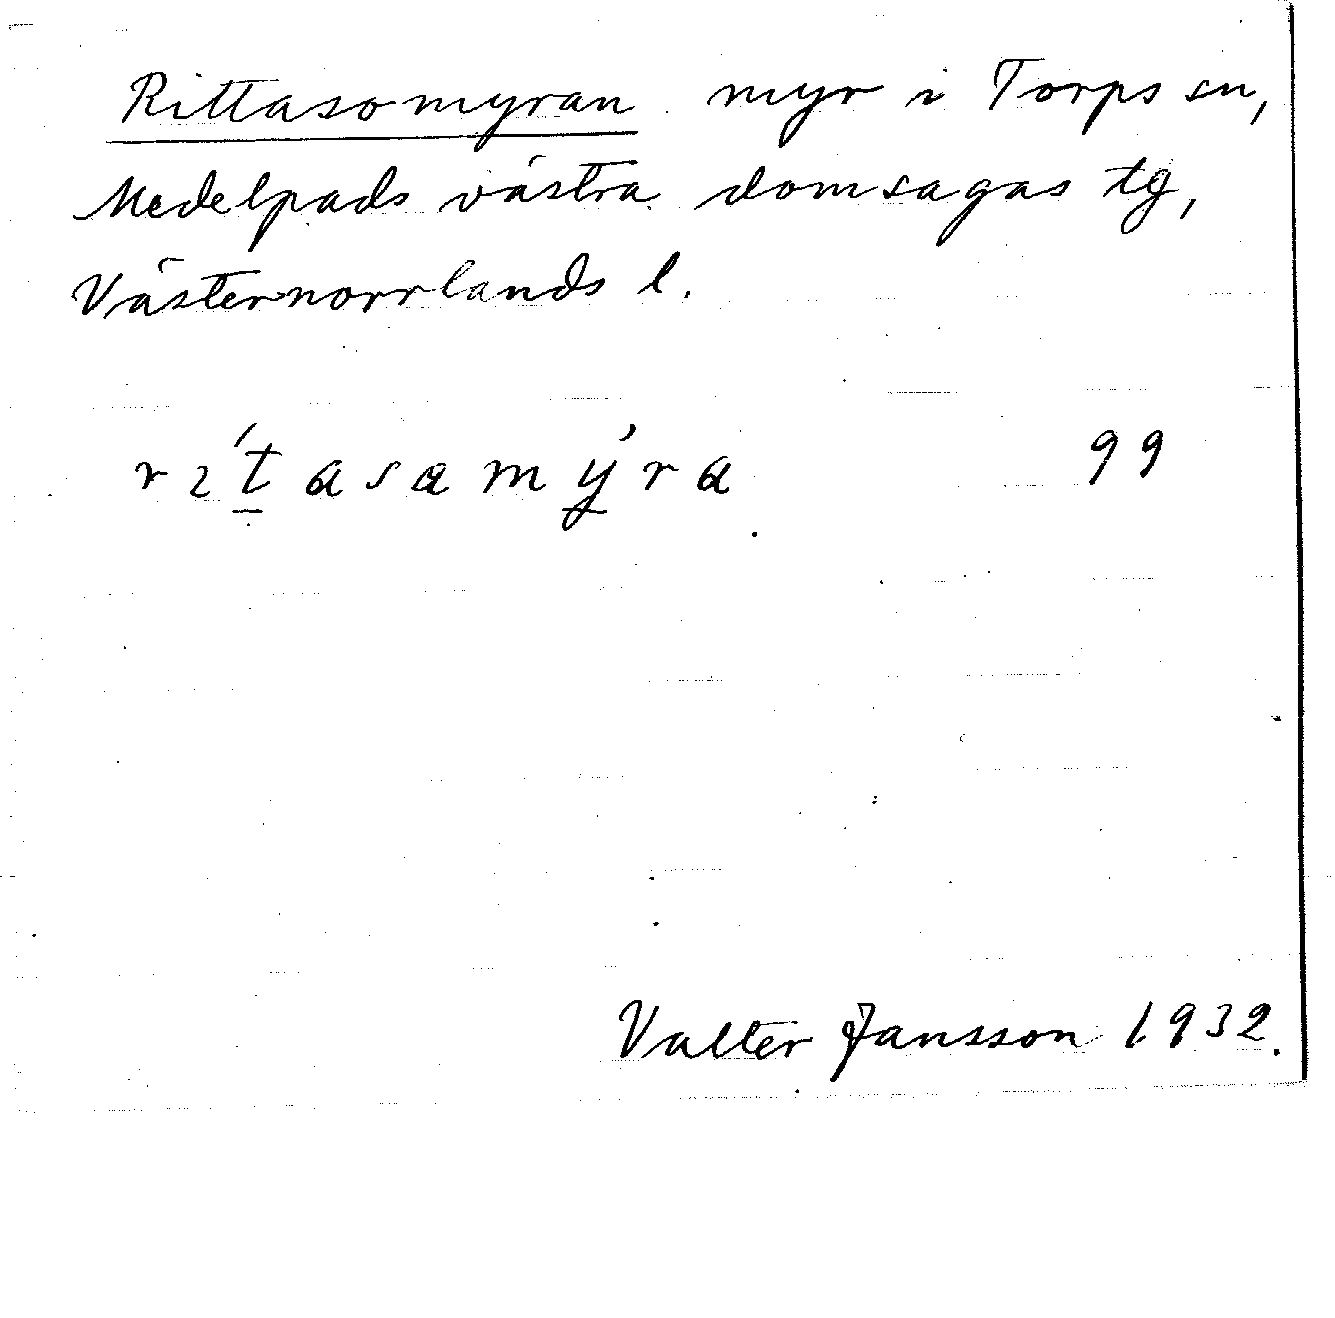 Rittasomyran myr i Torps sn,
Medelpads västra domsagas tg,
Västernorrlands l.
rɩ́tasamýra 99
Valter Jansson 1932.